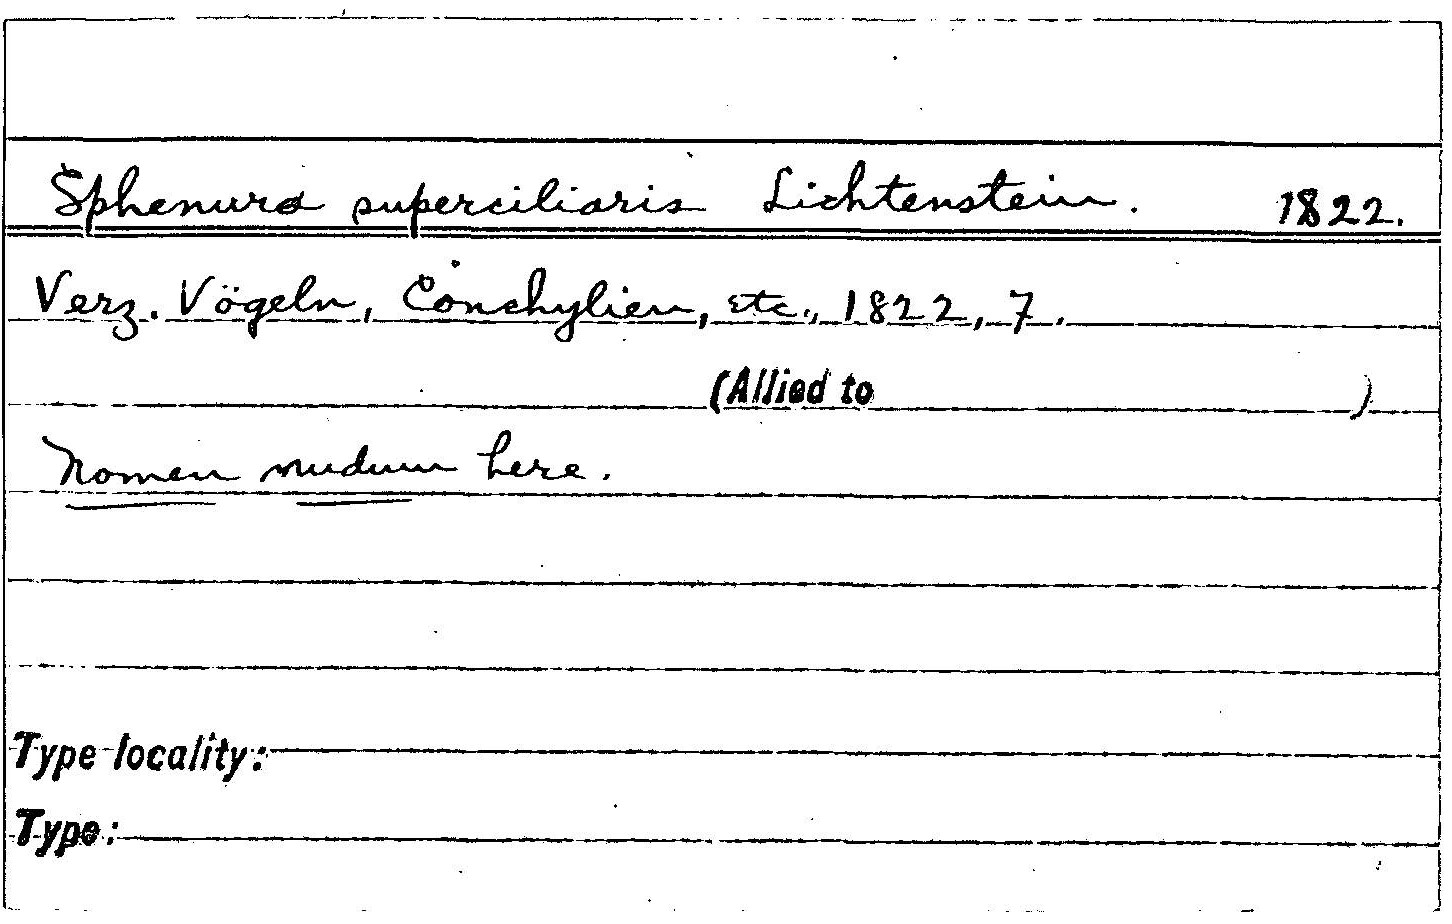 Sphenura superciliaris Lichtenstein. 1822.
Verz. Vögeln, Conchylien, etc., 1822, 7.
(Allied to )
Nomen nudum here.
Type locality:
Type: